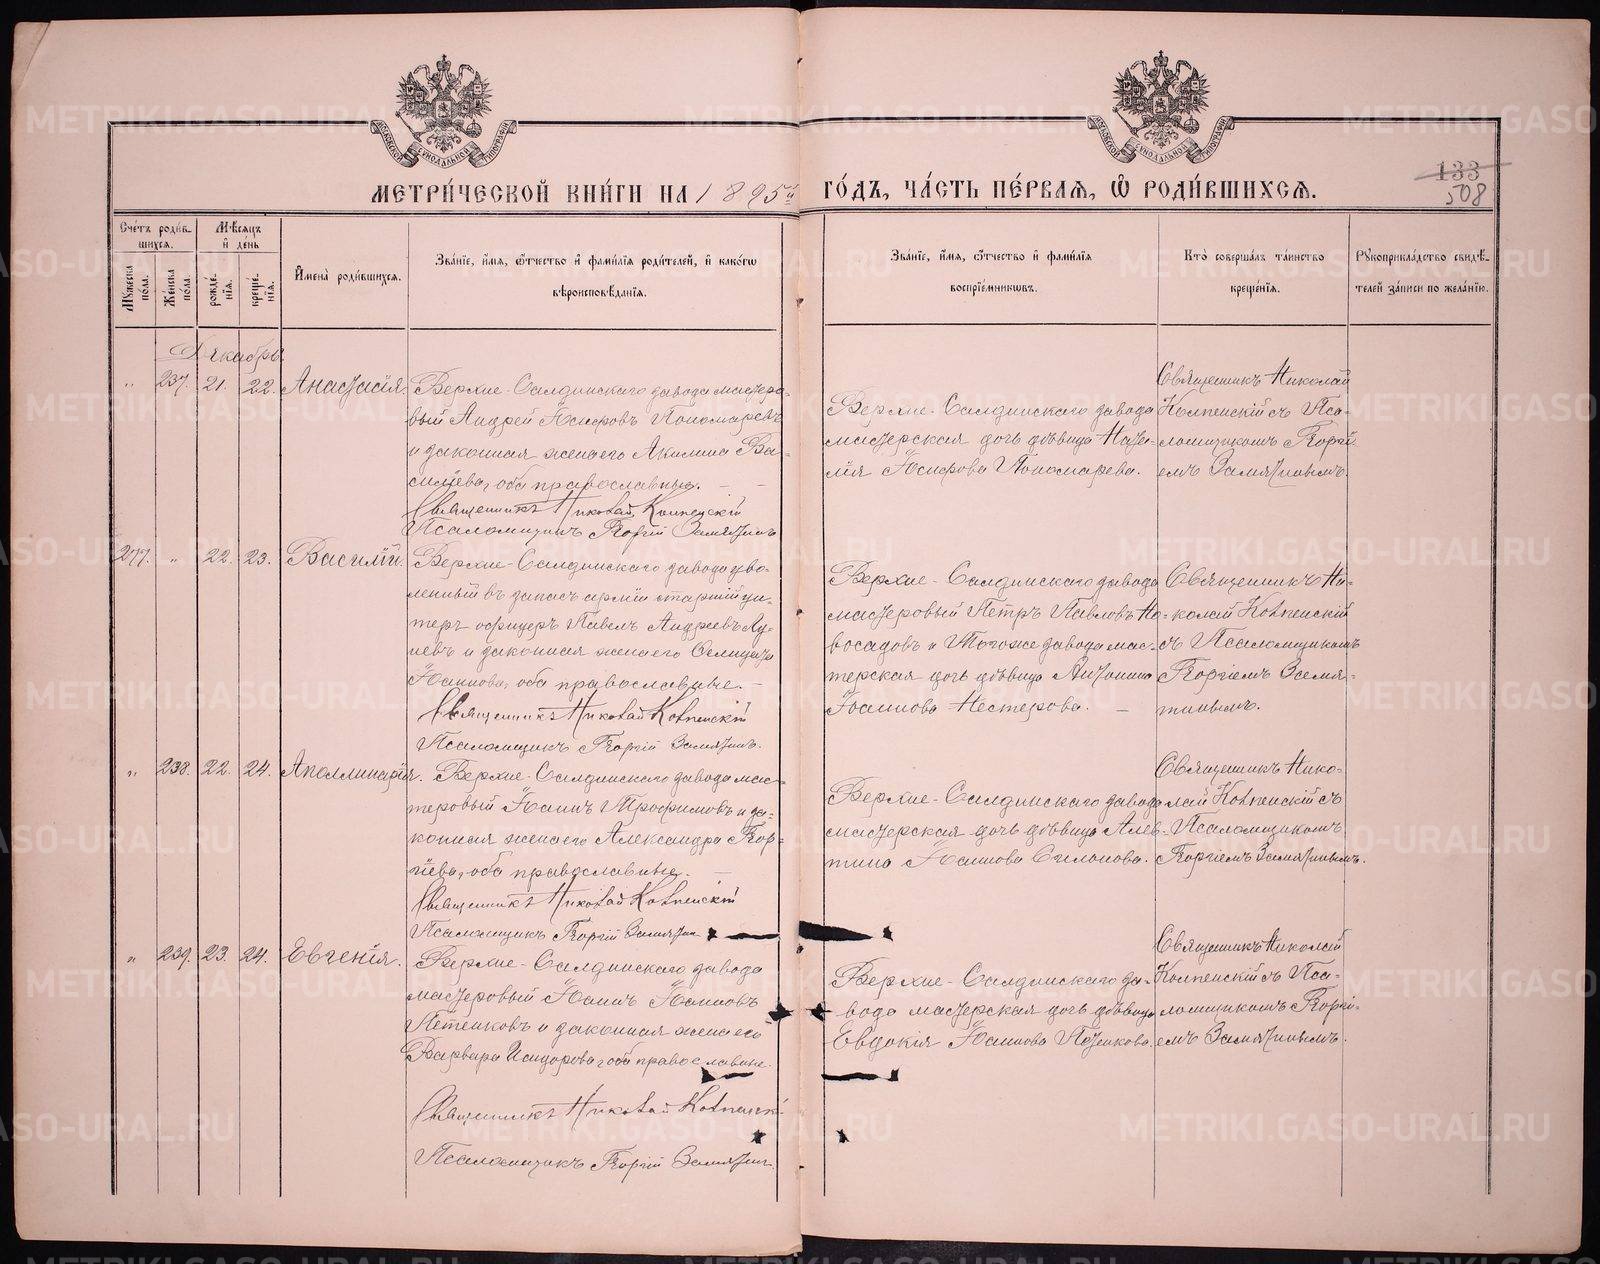 МЕТРИ́ЧЕСКОЙ КНИ́ГИ НА 1895й ГО́ДЪ, ЧА́СТЬ ПЕ́РВАѦ, Ѡ҆ РОДИ́ВШИХСѦ.
133
508
Сче́тъ роди́в-
шихсѧ.
Мѣ́сѧцъ
и҆ де́нь
Мꙋ́жеска по́ла.
Же́нска по́ла.
рожде́-
нїѧ.
креще́-
нїѧ.
И҆мена̀ роди́вшихсѧ.
Зва́нїе, и҆́мѧ, ѻ҆́тчество и҆ фами́лїѧ роди́телей, и҆ како́гѡ
вѣроисповѣ́данїѧ.
Зва́нїе, и҆́мѧ, ѻ҆́тчество и҆ фами́лїѧ
воспрїе́мникѡвъ.
Кто̀ соверша́лъ та́инство
креще́нїѧ.
Рꙋкоприкла́дство свидѣ́-
телей за́писи по жела́нїю.
Декабрь
" 237. 21. 22. Анастасія.
Верхне-Салдинскаго завода мастеро-
вый Андрей Іосифовъ Пономаревъ
и законная жена его Акилина Ва-
силіева, оба православные.
Священникъ Николай Колпенскій
Псаломщикъ Георгій Замятинъ
Верхне-Салдинскаго завода
мастерская дочь дѣвица Ната-
лія Іосифова Пономарева.
Священникъ Николай
Колпенскій съ Пса-
ломщикомъ Георгі-
емъ Замятинымъ.
277. " 22. 23. Василій.
Верхне-Салдинскаго завода уво-
ленный въ запасъ арміи старшій ун-
теръ офицеръ Павелъ Андреевъ
и законная жена его
Іоаннова, оба православные.
Священникъ Николай Колпенскій
Псаломщикъ Георгій Замятинъ.
Верхне-Салдинскаго завода
мастеровый Петръ Павловъ Но-
восадовъ и Тогоже завода мас-
терская дочь дѣвица Антонина
Іоаннова Нестерова.
Священникъ Ни-
колай Колпенскій
съ Псаломщикомъ
Георгіемъ Замя-
тинымъ.
" 238. 22. 24. Аполлинарія.
Верхне-Салдинскаго завода мас-
теровый Іоаннъ Трофимовъ и за-
конная жена его Александра Геор-
гіева, оба православные.
Священникъ Николай Колпенскій
Псаломщикъ Георгій Замятин
Верхне-Салдинскаго завода
мастерская дочь дѣвица Алев-
тина Іоаннова Силонова.
Священникъ Нико-
лай Колпенскій съ
Псаломщикомъ
Георгіемъ Замятинымъ.
" 239. 23. 24. Евгенія.
Верхне-Салдинскаго завода
мастеровый Іоаннъ Іоанновъ
Петенковъ и законная жена его
Варвара Исидорова, оба православные.
Священникъ Николай Колпенскій
Псаломщикъ Георгій Замятин.
Верхне-Салдинскаго за-
вода мастерская дочь дѣвица
Евдокія Іоаннова Петенкова.
Священникъ Николай
Колпенскій съ Пса-
ломщикомъ Георгі-
емъ Замятинымъ.
METRIKI.GASO-URAL.RU